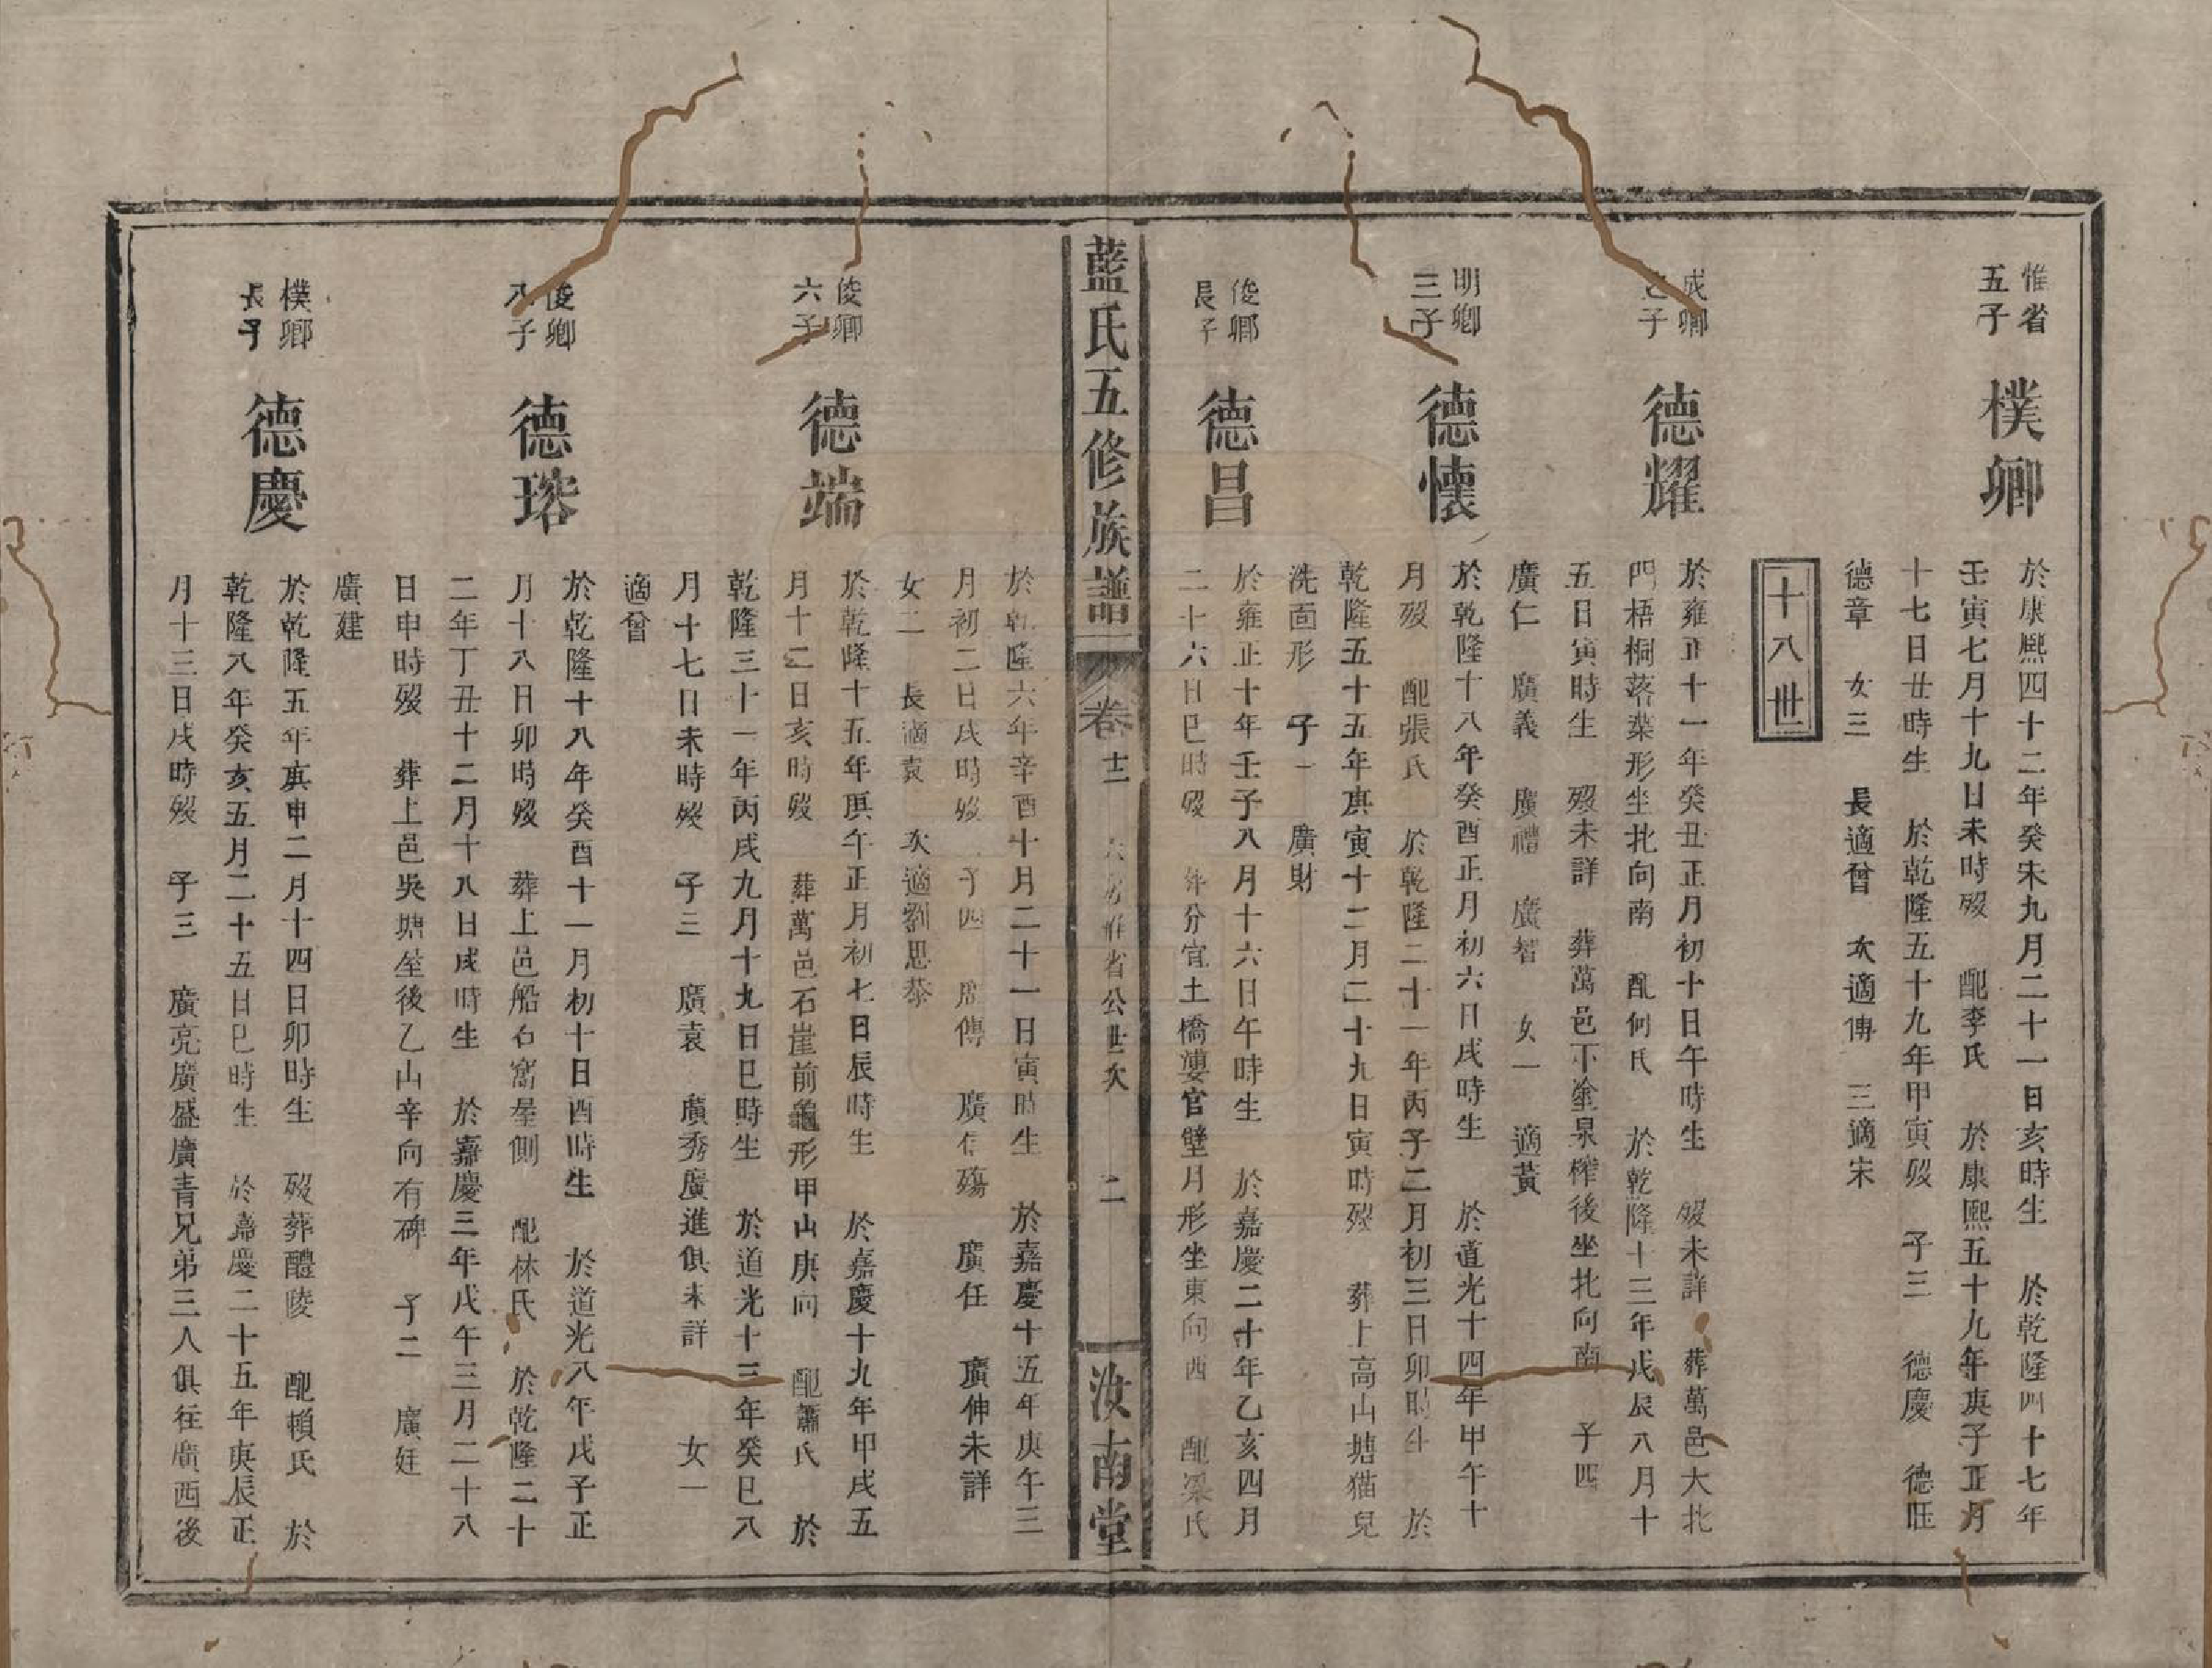 惟省
五子
樸卿
於康熙四十二年癸未九月二十一日亥時生 於乾隆四十七年
壬寅七月十九日未時歿 配李氏 於康熙五十九年庚子正月
十七日丑時生 於乾隆五十九年甲寅歿 子三 德慶 德旺
德章 女三 長適曾 次適傅 三適宋
十八世
成卿
子
德耀
於雍正十一年癸丑正月初十日午時生 歿未詳 葬萬邑大北
門梧桐落葉形坐北向南 配何氏 於乾隆十三年戊辰八月十
五日寅時生 歿未詳 葬萬邑下塗泉榨後坐北向南 子四
廣仁 廣義 廣禮 廣智 女一 適黃
明卿
三子
德懷
於乾隆十八年癸酉正月初六日戌時生 於道光十四年甲午十
月歿 配張氏 於乾隆二十一年丙子二月初三日卯時生 於
乾隆五十五年庚寅十二月二十九日寅時歿 葬上高山塘猫兒
洗面形 子一 廣財
俊卿
長子
德昌
於雍正十年壬子八月十六日午時生 於嘉慶二十年乙亥四月
二十六日巳時歿 葬分宜土橋漊官壁月形坐東向西 配梁氏
藍氏五修族譜
卷十二
房惟省公世次
二
汝南堂
於乾隆六年辛酉十月二十一日寅時生 於嘉慶十五年庚午三
月初二日戌時歿 子四 廣傳 廣信殤 廣任 廣伸未詳
女二 長適袁 次適劉思恭
俊卿
六子
德端
於乾隆十五年庚午正月初七日辰時生 於嘉慶十九年甲戌五
月十二日亥時歿 葬萬邑石崖前龜形甲山庚向 配蕭氏 於
乾隆三十一年丙戌九月十九日巳時生 於道光十三年癸巳八
月十七日未時歿 子三 廣袁 廣秀廣進俱未詳 女一
適曾
俊卿
八子
德瑢
於乾隆十八年癸酉十一月初十日酉時生 於道光八年戊子正
月十八日卯時歿 葬上邑船石窩屋側 配林氏 於乾隆二十
二年丁丑十二月十八日戌時生 於嘉慶三年戊午三月二十八
日申時歿 葬上邑吳塘屋後乙山辛向有碑 子二 廣廷
廣建
樸卿
長子
德慶
於乾隆五年庚申二月十四日卯時生 歿葬醴陵 配賴氏 於
乾隆八年癸亥五月二十五日巳時生 於嘉慶二十五年庚辰正
月十三日戌時歿 子三 廣亮廣盛廣青兄弟三人俱往廣西後